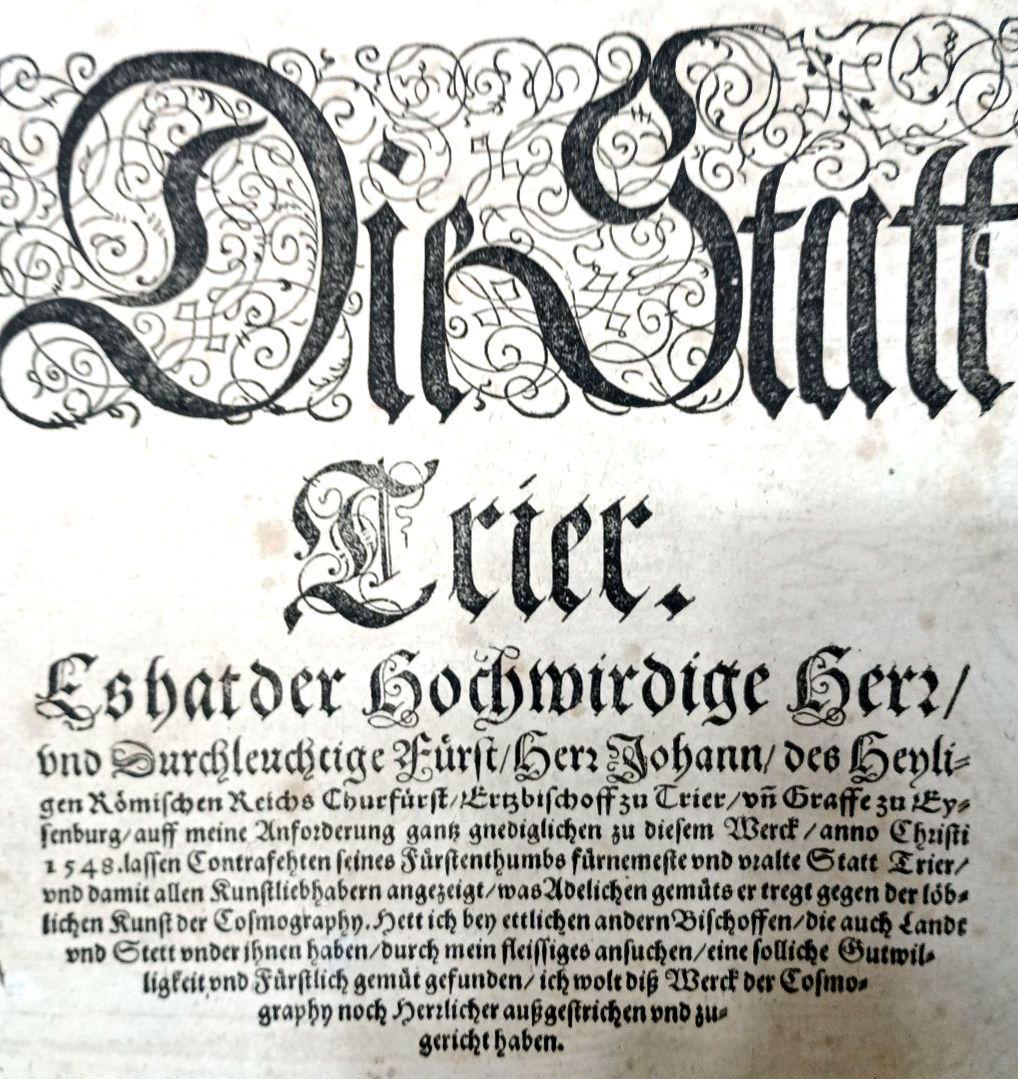 Die Statt
Trier.
Es hat der Hochwirdige Herr/
vnd Durchleuchtige Fürst/Herr Johann/ des Heyli-
gen Römischen Reichs Churfürst/Ertzbischoff zu Trier/vñ Graffe zu Ey-
senburg/auff meine Anforderung gantz gnediglichen zu diesem Werck/anno Christi
1548.lassen Contrafehten seines Fürstenthumbs fürnemeste vnd vralte Statt Trier/
vnd damit allen Kunstliebhabern angezeigt/was Adelichen gemüts er tregt gegen der löb-
lichen Kunst der Cosmography.Hett ich bey ettlichen andern Bischoffen/die auch Landt
vnd Stett vnder ihnen haben/durch mein fleissiges ansuchen/eine solliche Gutwil-
ligkeit vnd Fürstlich gemüt gefunden/ich wolt diß Werck der Cosmo-
graphy noch Herrlicher außgestrichen vnd zu-
gericht haben.